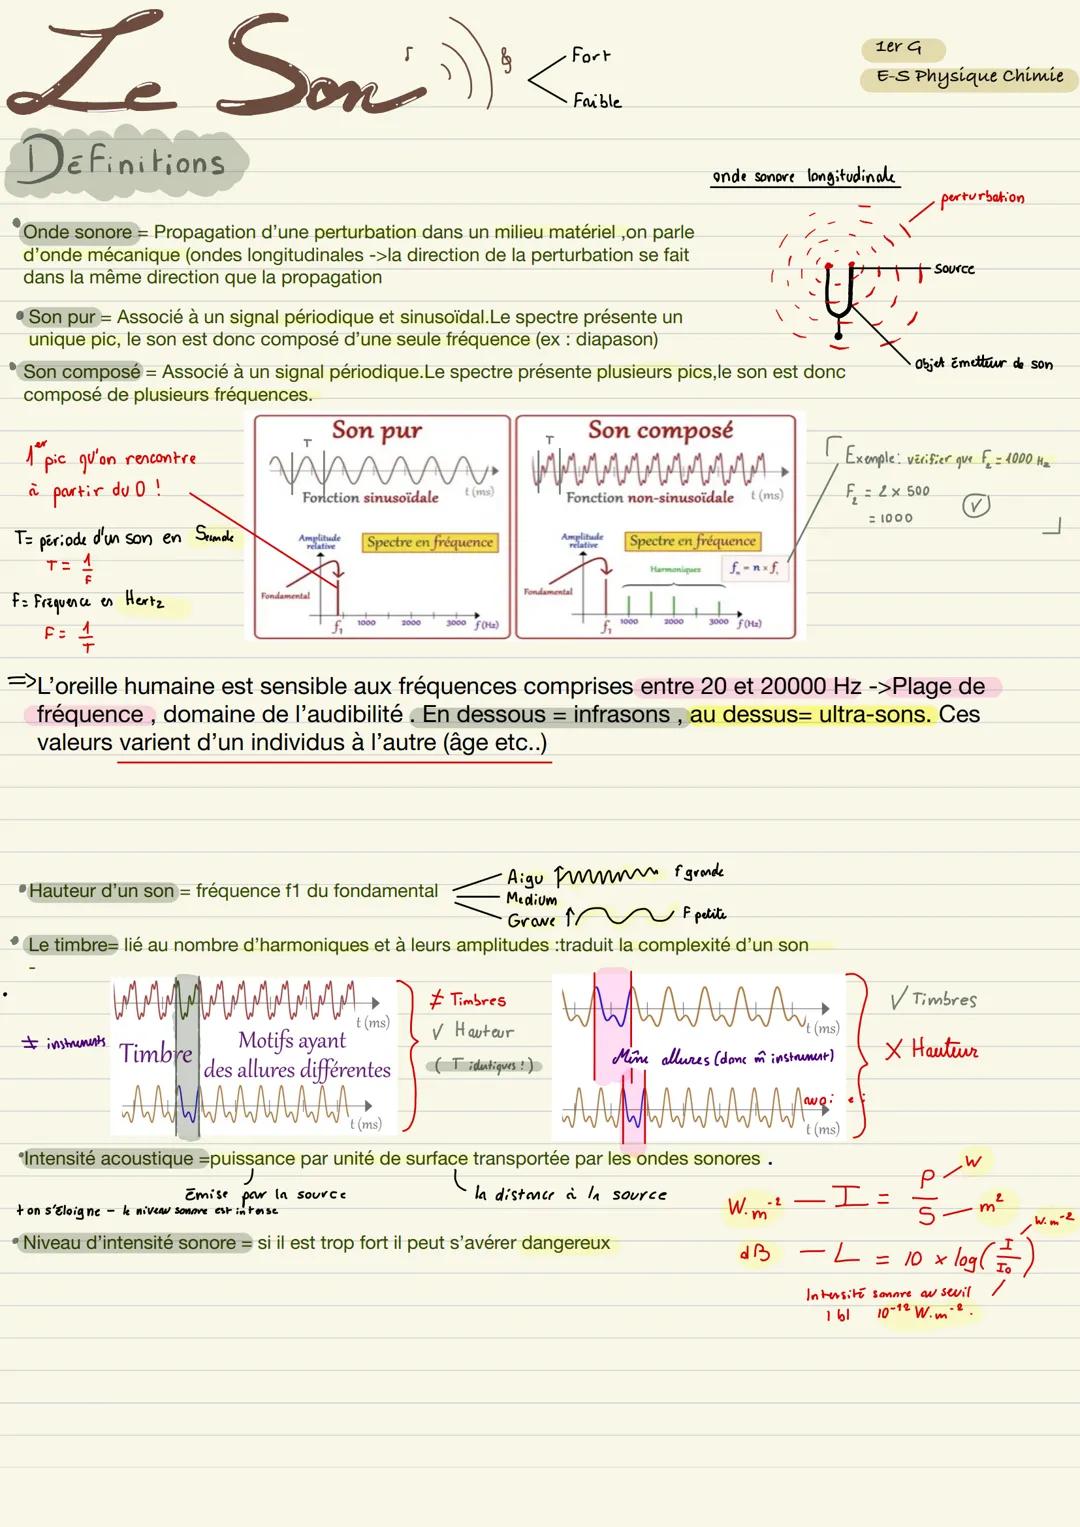 Le Son
Fort
Faible
1er G
E-S Physique Chimie
Définitions
onde sonore longitudinale
perturbation
source
Objet Emetteur de son
Onde sonore = Propagation d'une perturbation dans un milieu matériel ,on parle
d'onde mécanique (ondes longitudinales ->la direction de la perturbation se fait
dans la même direction que la propagation
Son pur = Associé à un signal périodique et sinusoïdal.Le spectre présente un
unique pic, le son est donc composé d'une seule fréquence (ex : diapason)
Son composé = Associé à un signal périodique.Le spectre présente plusieurs pics,le son est donc
composé de plusieurs fréquences.
1er pic qu'on rencontre
à partir du 0 !
T= période d'un son en Seconde
T = 1/F
F= Fréquence en Hertz
F= 1/T
Son pur
T
t (ms)
Fonction sinusoïdale
Amplitude
relative
Spectre en fréquence
Fondamental
f1 1000 2000 3000 f(Hz)
Son composé
T
Fonction non-sinusoïdale t (ms)
Amplitude
relative
Spectre en fréquence
Harmoniques
fn = n × f1
Fondamental
f1 1000 2000 3000 f(Hz)
Exemple: vérifier que F2 = 1000 Hz
F2 = 2 x 500
= 1000
=>L'oreille humaine est sensible aux fréquences comprises entre 20 et 20000 Hz ->Plage de
fréquence , domaine de l'audibilité . En dessous = infrasons , au dessus= ultra-sons. Ces
valeurs varient d'un individus à l'autre (âge etc..)
Hauteur d'un son = fréquence f1 du fondamental
Aigu f grande
Medium
Grave F petite
Le timbre= lié au nombre d'harmoniques et à leurs amplitudes :traduit la complexité d'un son
-
≠ instruments
t (ms)
Timbre
Motifs ayant
des allures différentes
t (ms)
≠ Timbres
√ Hauteur
( T identiques ! )
t (ms)
Même allures (donc m̂ instrument)
t (ms)
√ Timbres
X Hauteur
Intensité acoustique =puissance par unité de surface transportée par les ondes sonores .
Emise par la source
la distance à la source
+ on s'éloigne - le niveau sonore est intense
Niveau d'intensité sonore = si il est trop fort il peut s'avérer dangereux
W.m⁻² — I = P/S
W
m²
dB — L = 10 x log(I/I0)
W.m⁻²
Intensité sonore au seuil
10⁻¹² W.m⁻².